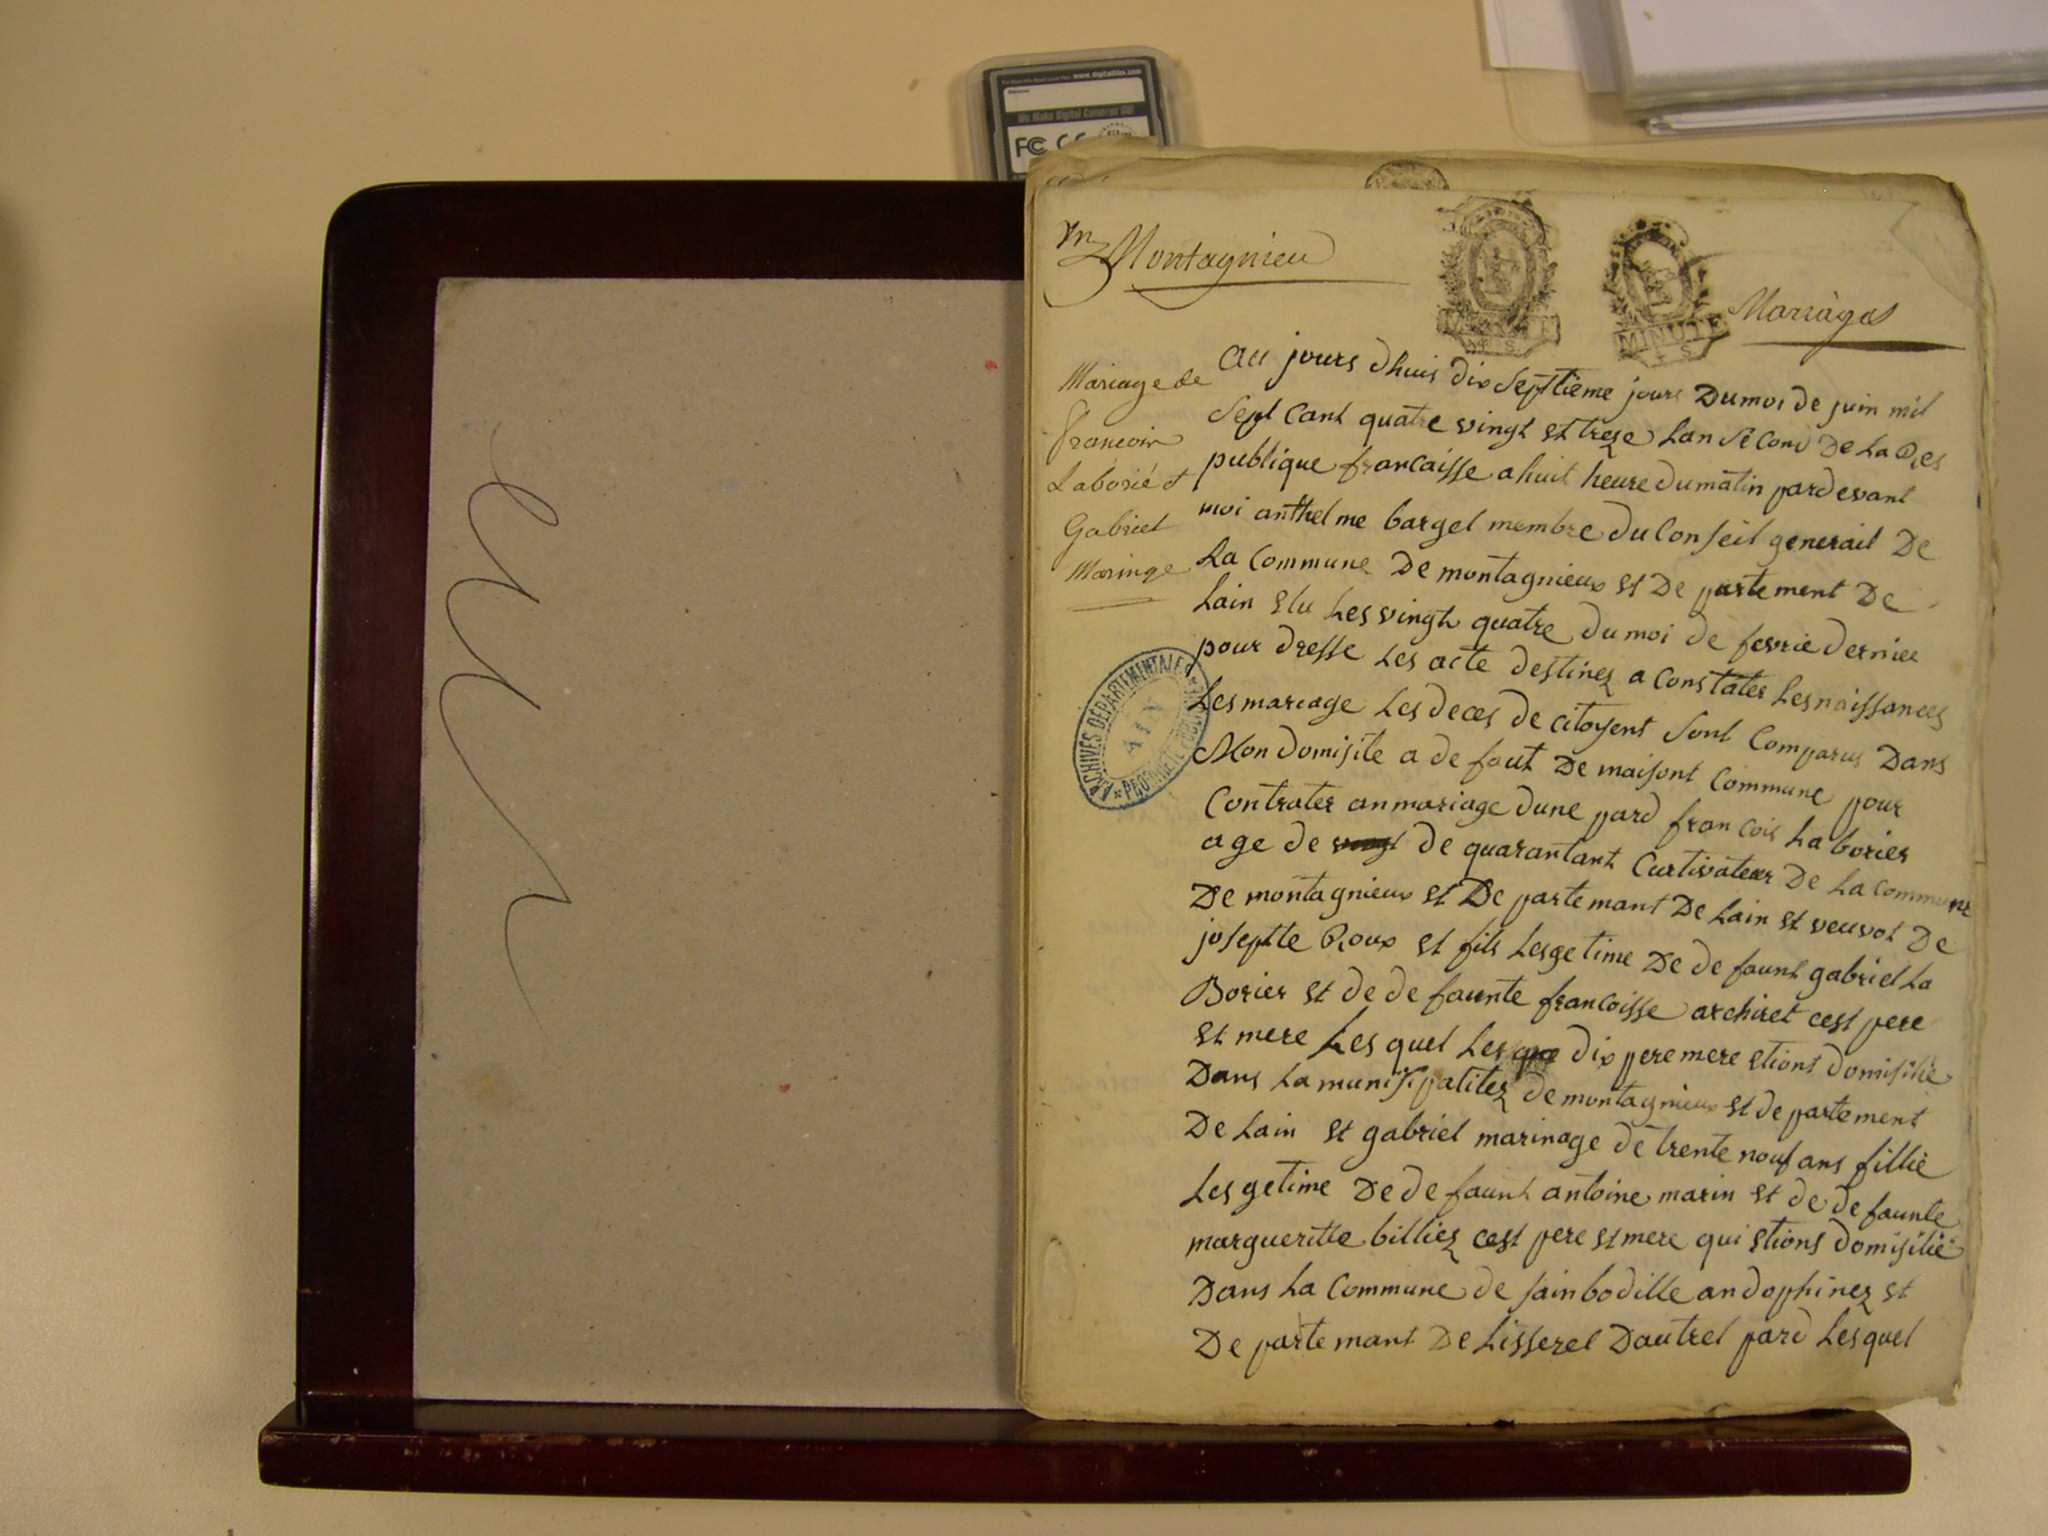 www.digitalblue.com
We Make Digital Cameras
FC
Montagnieu
MINUTE
4 S.
MINUTE
4 S.
Mariages
Mariage de
francoir
Laborié et
Gabriel
Maringe
ARCHIVES DÉPARTEMENTALES
AIN
* PROPRIÉTÉ PUBLIQUE *
au jours dhuis dix Septtieme jours Dumoi de juin mil
Sept Cant quatre vingt et treze Lan Second De La Res
publique francaisse a huit heure dumatin pardevant
moi anthelme bargel membre du Conseil generail De
La Commune De montagnieux et De partement De
Lain elu Les vingt quatre du moi de fevrie dernier
pour dresse Les acte destinez a Constater Les naissances
Les mariage Les deces de citoyent Sont Comparus Dans
Mon domisile a de faut De maisont Commune pour
Contrater anmariage dune pard francois La borier
age de de quarantant Curtivateur De La commune
De montagnieux et De partemant De Lain et veuvot De
joseptte Roux et fils Lesgetime De de faunt gabriel La
Borier et de de faunte francoisse archiret cest pere
et mere Les quel Les dix pere mere etions domisilie
Dans La munisipalitez de montagnieux et de partement
De Lain et gabriel marinage de trente nouf ans fillie
Les getime De de faunt antoine marin et de de faunte
margueritte billiez cest pere et mere qui etions domisilie
Dans La Commune de sainbodille andophinez et
De partemant De Lisserel Dautrel pard Lesquel